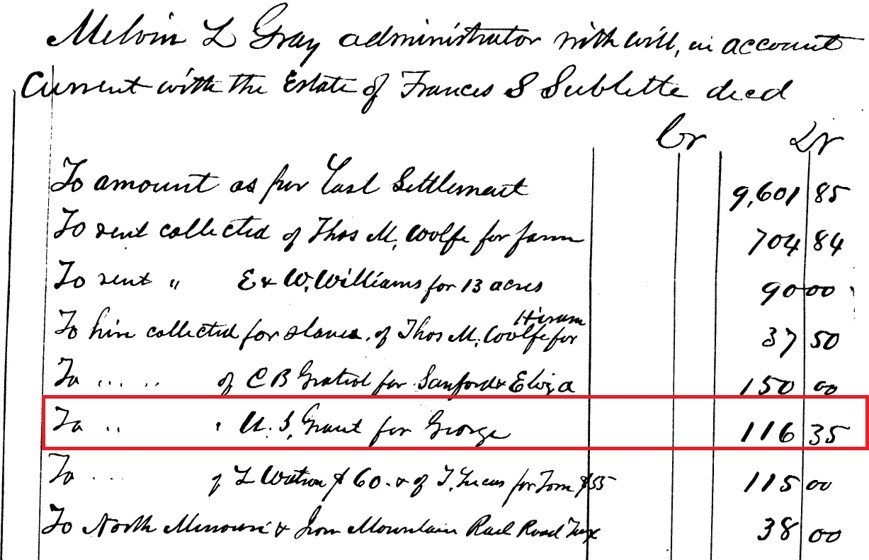 Melvin L Gray administrator with will, in account
Current with the Estate of Frances S Sublette decd
Cr Dr
To amount as per Last Settlement 9,601 85
To rent collected of Thos M, Wolfe for farm 704 84
To rent " E & W, Williams for 13 acres 90 00
To hire collected for slaves, of Thos M, Woolfe for Hiram 37 50
To " " of C B Gratiot for Sanford & Eliza 150 00
To " " U. S, Grant for George 116 35
To " " of L Watson $60. & of T, Lucas for Tom $55 115 00
To North Missouri & Iron Mountain Rail Road Tax 38 00